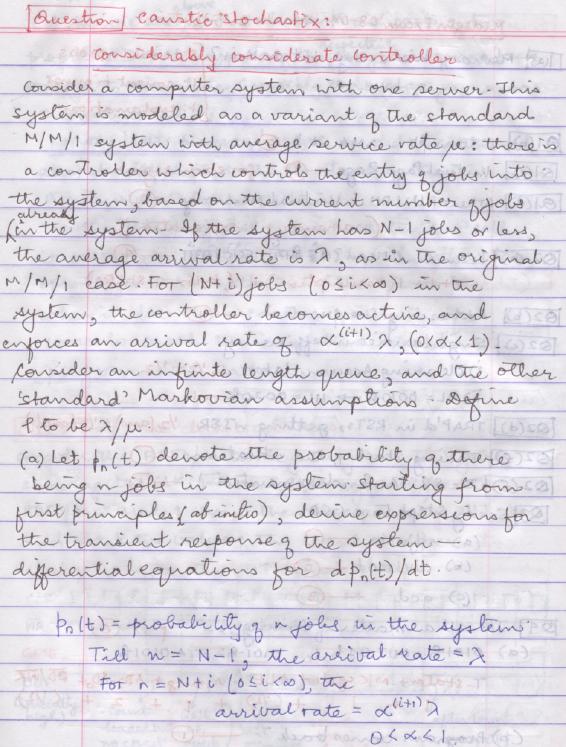 Question Caustic Stochastix:
Considerably considerate Controller
Consider a computer system with one server. This
system is modeled as a variant of the standard
M/M/1 system with average service rate μ: there is
a controller which controls the entry of jobs into
the system, based on the current number of jobs
already
(in the system. If the system has N-1 jobs or less,
the average arrival rate is λ, as in the original
M/M/1 case. For (N+i) jobs (0≤i<∞) in the
system, the controller becomes active, and
enforces an arrival rate of α^(i+1) λ, (0<α<1).
Consider an infinite length queue, and the other
'standard' Markovian assumptions. Define
ρ to be λ/μ.
(a) Let pn(t) denote the probability of there
being n jobs in the system. Starting from
first principles (ab initio), derive expressions for
the transient response of the system —
differential equations for dpn(t)/dt.
pn(t) = probability of n jobs in the system.
Till n = N-1, the arrival rate = λ
For n = N+i (0≤i<∞), the
arrival rate = α^(i+1) λ
0<α<1